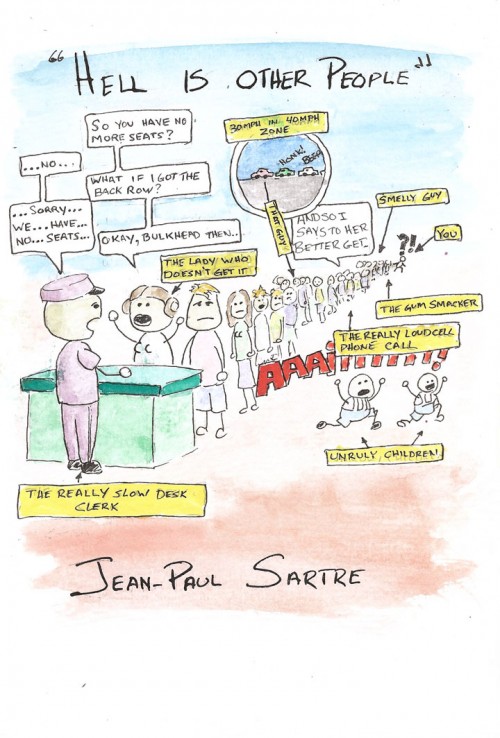 "HELL IS OTHER PEOPLE"
SO YOU HAVE NO
MORE SEATS?
...NO...
WHAT IF I GOT THE
BACK ROW?
...SORRY...
WE...HAVE...
NO...SEATS...
OKAY, BULKHEAD THEN..
THE LADY WHO
DOESN'T GET IT
30MPH IN 40MPH
ZONE
HONK!
BEEP
THAT GUY
AND SO I
SAYS TO HER
BETTER GET..
SMELLY GUY
?!
YOU
THE GUM SMACKER
THE REALLY LOUD CELL
PHONE CALL
AAAiiiiiii!!!
UNRULY CHILDREN
THE REALLY SLOW DESK
CLERK
JEAN-PAUL SARTRE